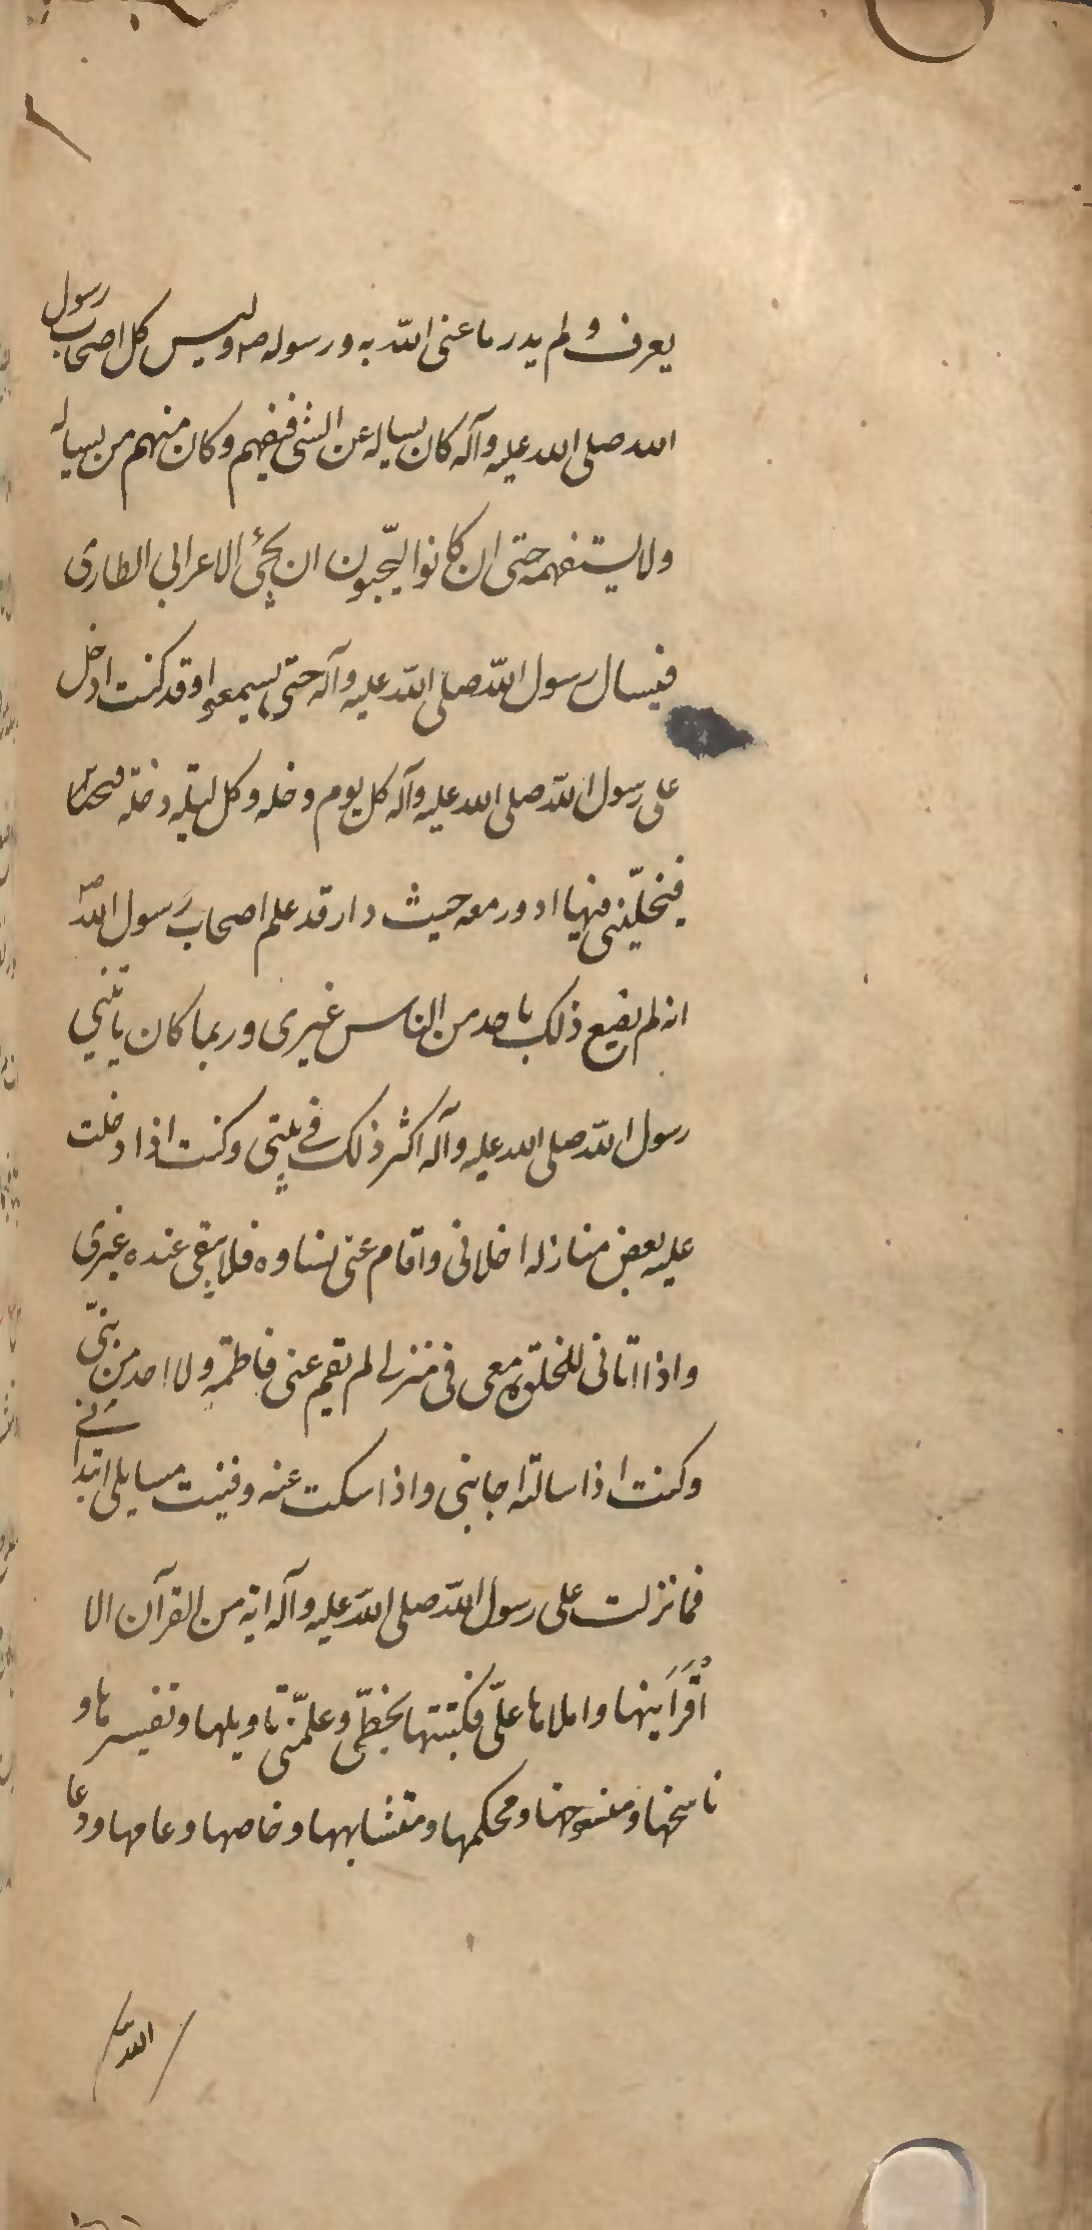 يعرف ولم يدر ما عنى الله به ورسوله ص وليس كل اصحاب رسول
الله صلى الله عليه وآله كان يساله عن الشى فيفهم وكان منهم من يساله
ولا يستفهمه حتى ان كانوا ليحبون ان يجيئ الاعرابي الطارى
فيسال رسول الله صلى الله عليه وآله حتى يسمعوا وقد كنت ادخل
على رسول الله صلى الله عليه وآله كل يوم دخله وكل ليلة دخلة
فيخلّيني فيها ادور معه حيث دار قد علم اصحاب رسول الله ص
انه لم يصنع ذلك باحد من الناس غيرى وربما كان ياتيني
رسول الله صلى الله عليه وآله اكثر ذلك في بيتي وكنت اذا دخلت
عليه بعض منازله اخلانى واقام عنى نساوه فلا يبقى عنده غيرى
واذا اتانى للخلوة معى فى منزلى لم تقم عنى فاطمة ولا احد من بنىّ
وكنت اذا سالته اجابنى واذا سكت عنه وفنيت مسايلى ابتدأنى
فما نزلت على رسول الله صلى الله عليه وآله اية من القرآن الا
اقرأنيها واملاها علىّ فكتبتها بخطّى وعلّمنى تاويلها وتفسيرها و
ناسخها ومنسوخها ومحكمها ومتشابهها وخاصها وعامها ودعا
الله